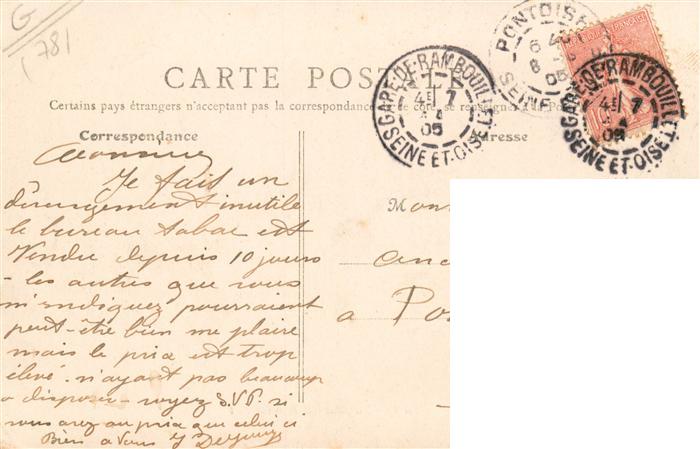 G
(781
CARTE POSTALE
Certains pays étrangers n'acceptant pas la correspondance de ce côté, se renseigner à la Poste
Correspondance
Adresse
PONTOISE
6
8
05
SEINE
RÉPUBLIQUE FRANÇAISE
GARE-DE-RAMBOUILLET
4E 7
4
05
SEINE ET-OISE
GARE-DE-RAMBOUILLET
4E 7
4
05
SEINE ET-OISE
Monsieur
Je fais un
dérangement inutile
le bureau tabac est
Vendu depuis 10 jours
- les autres que vous
m'indiquez pourraient
peut-être bien me plaire
mais le prix est trop
élevé. n'ayant pas beaucoup
a disposer - voyez S.V.P. si
vous avez au prix que celui ci
Bien a Vous
Mons
anc
a Po